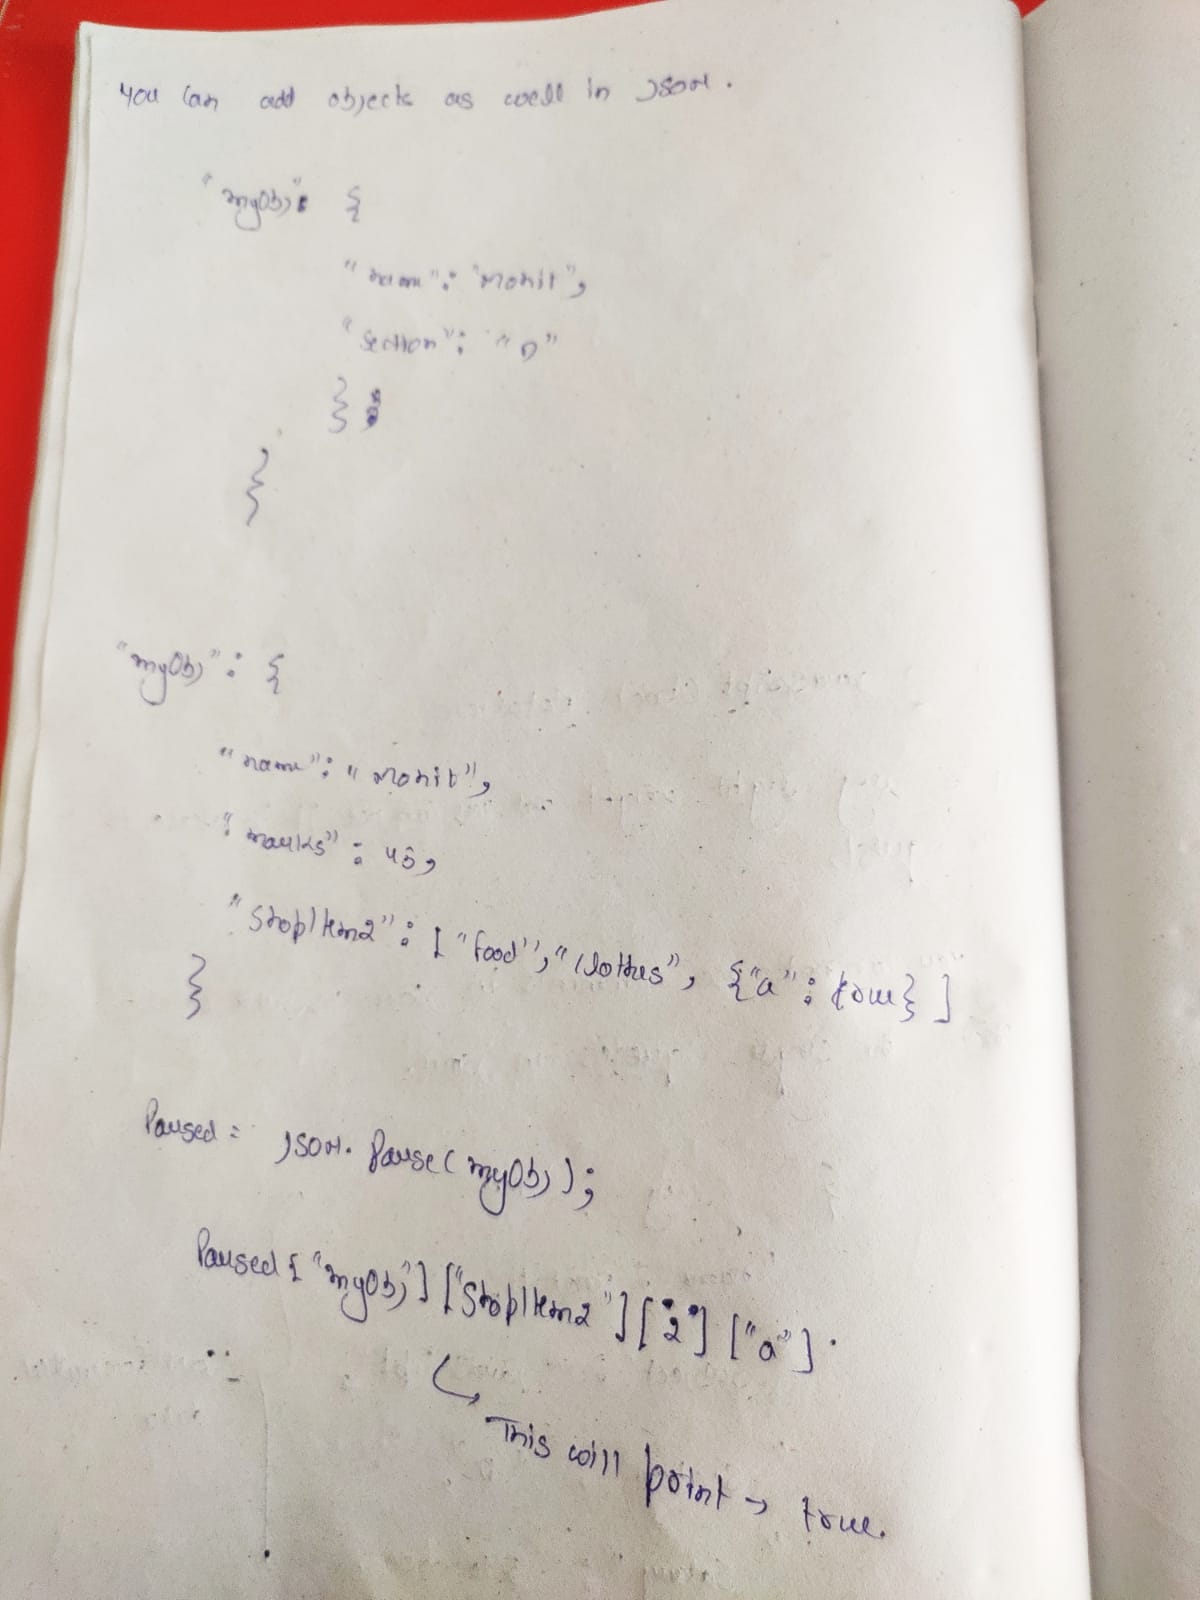 You can add objects as well in JSON.
"myObj": {
"name": "Mohit",
"Section": "D"
}
}
"myObj": {
"name": "Mohit",
"marks": 45,
"StopItem2": ["food", "Clothes", {"a": true}]
}
Parsed = JSON.Parse(myObj);
Parsed["myObj"]["StopItem2"][2]["a"].
This will print → true.